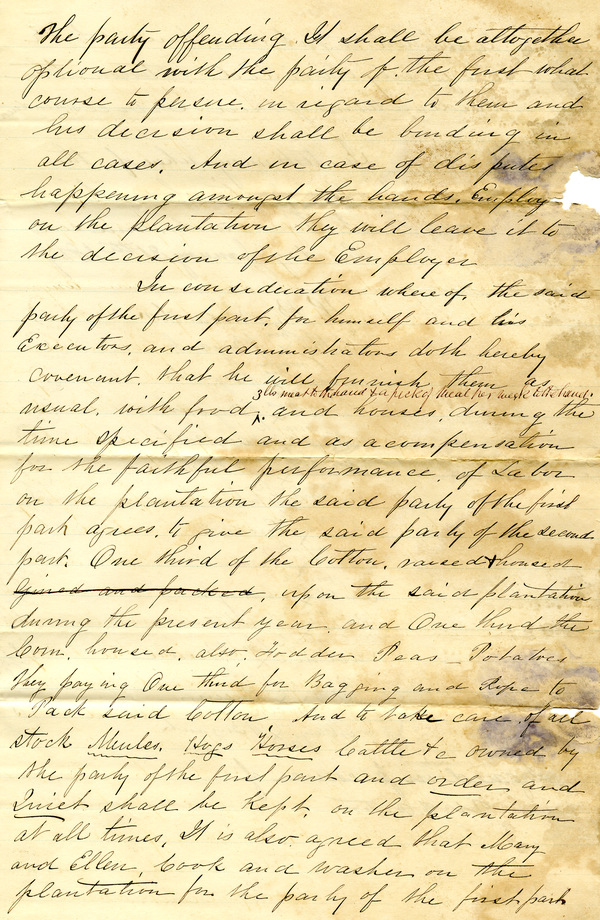 the party offending It shall be altogether
optional with the party of the first what
course to persue, in regard to them and
his decision shall be binding in
all cases. And in case of disputes
happening amongst the hands, Employ
on the plantation they will leave it to
the decision of the Employer
In consideration whereof, the said
party of the first part, for himself and his
Executors, and administrators doth hereby
covenant, that he will furnish them as
3 lbs meat to the hand & a peck of meal per week to the hand
usual, with food, and houses, during the
time specified and as a compensation
for the faithful performance, of Labor
on the plantation the said party of the first
park agrees, to give the said party of the second
part. One third of the Cotton, raised & housed
Gined and packed, upon the said plantation
during the present year, and One third the
Corn, housed, also, Fodder Peas - Potatoes
they paying One third for Bagging and Rope to
Pack said Cotton, And to take care of all
stock Meules, Hogs Horses Cattle & c owned by
the party of the first part and order and
Quiet shall be kept, on the plantation
at all times, It is also agreed that Mary
and Ellen, Cook and washer on the
plantation for the party of the first part